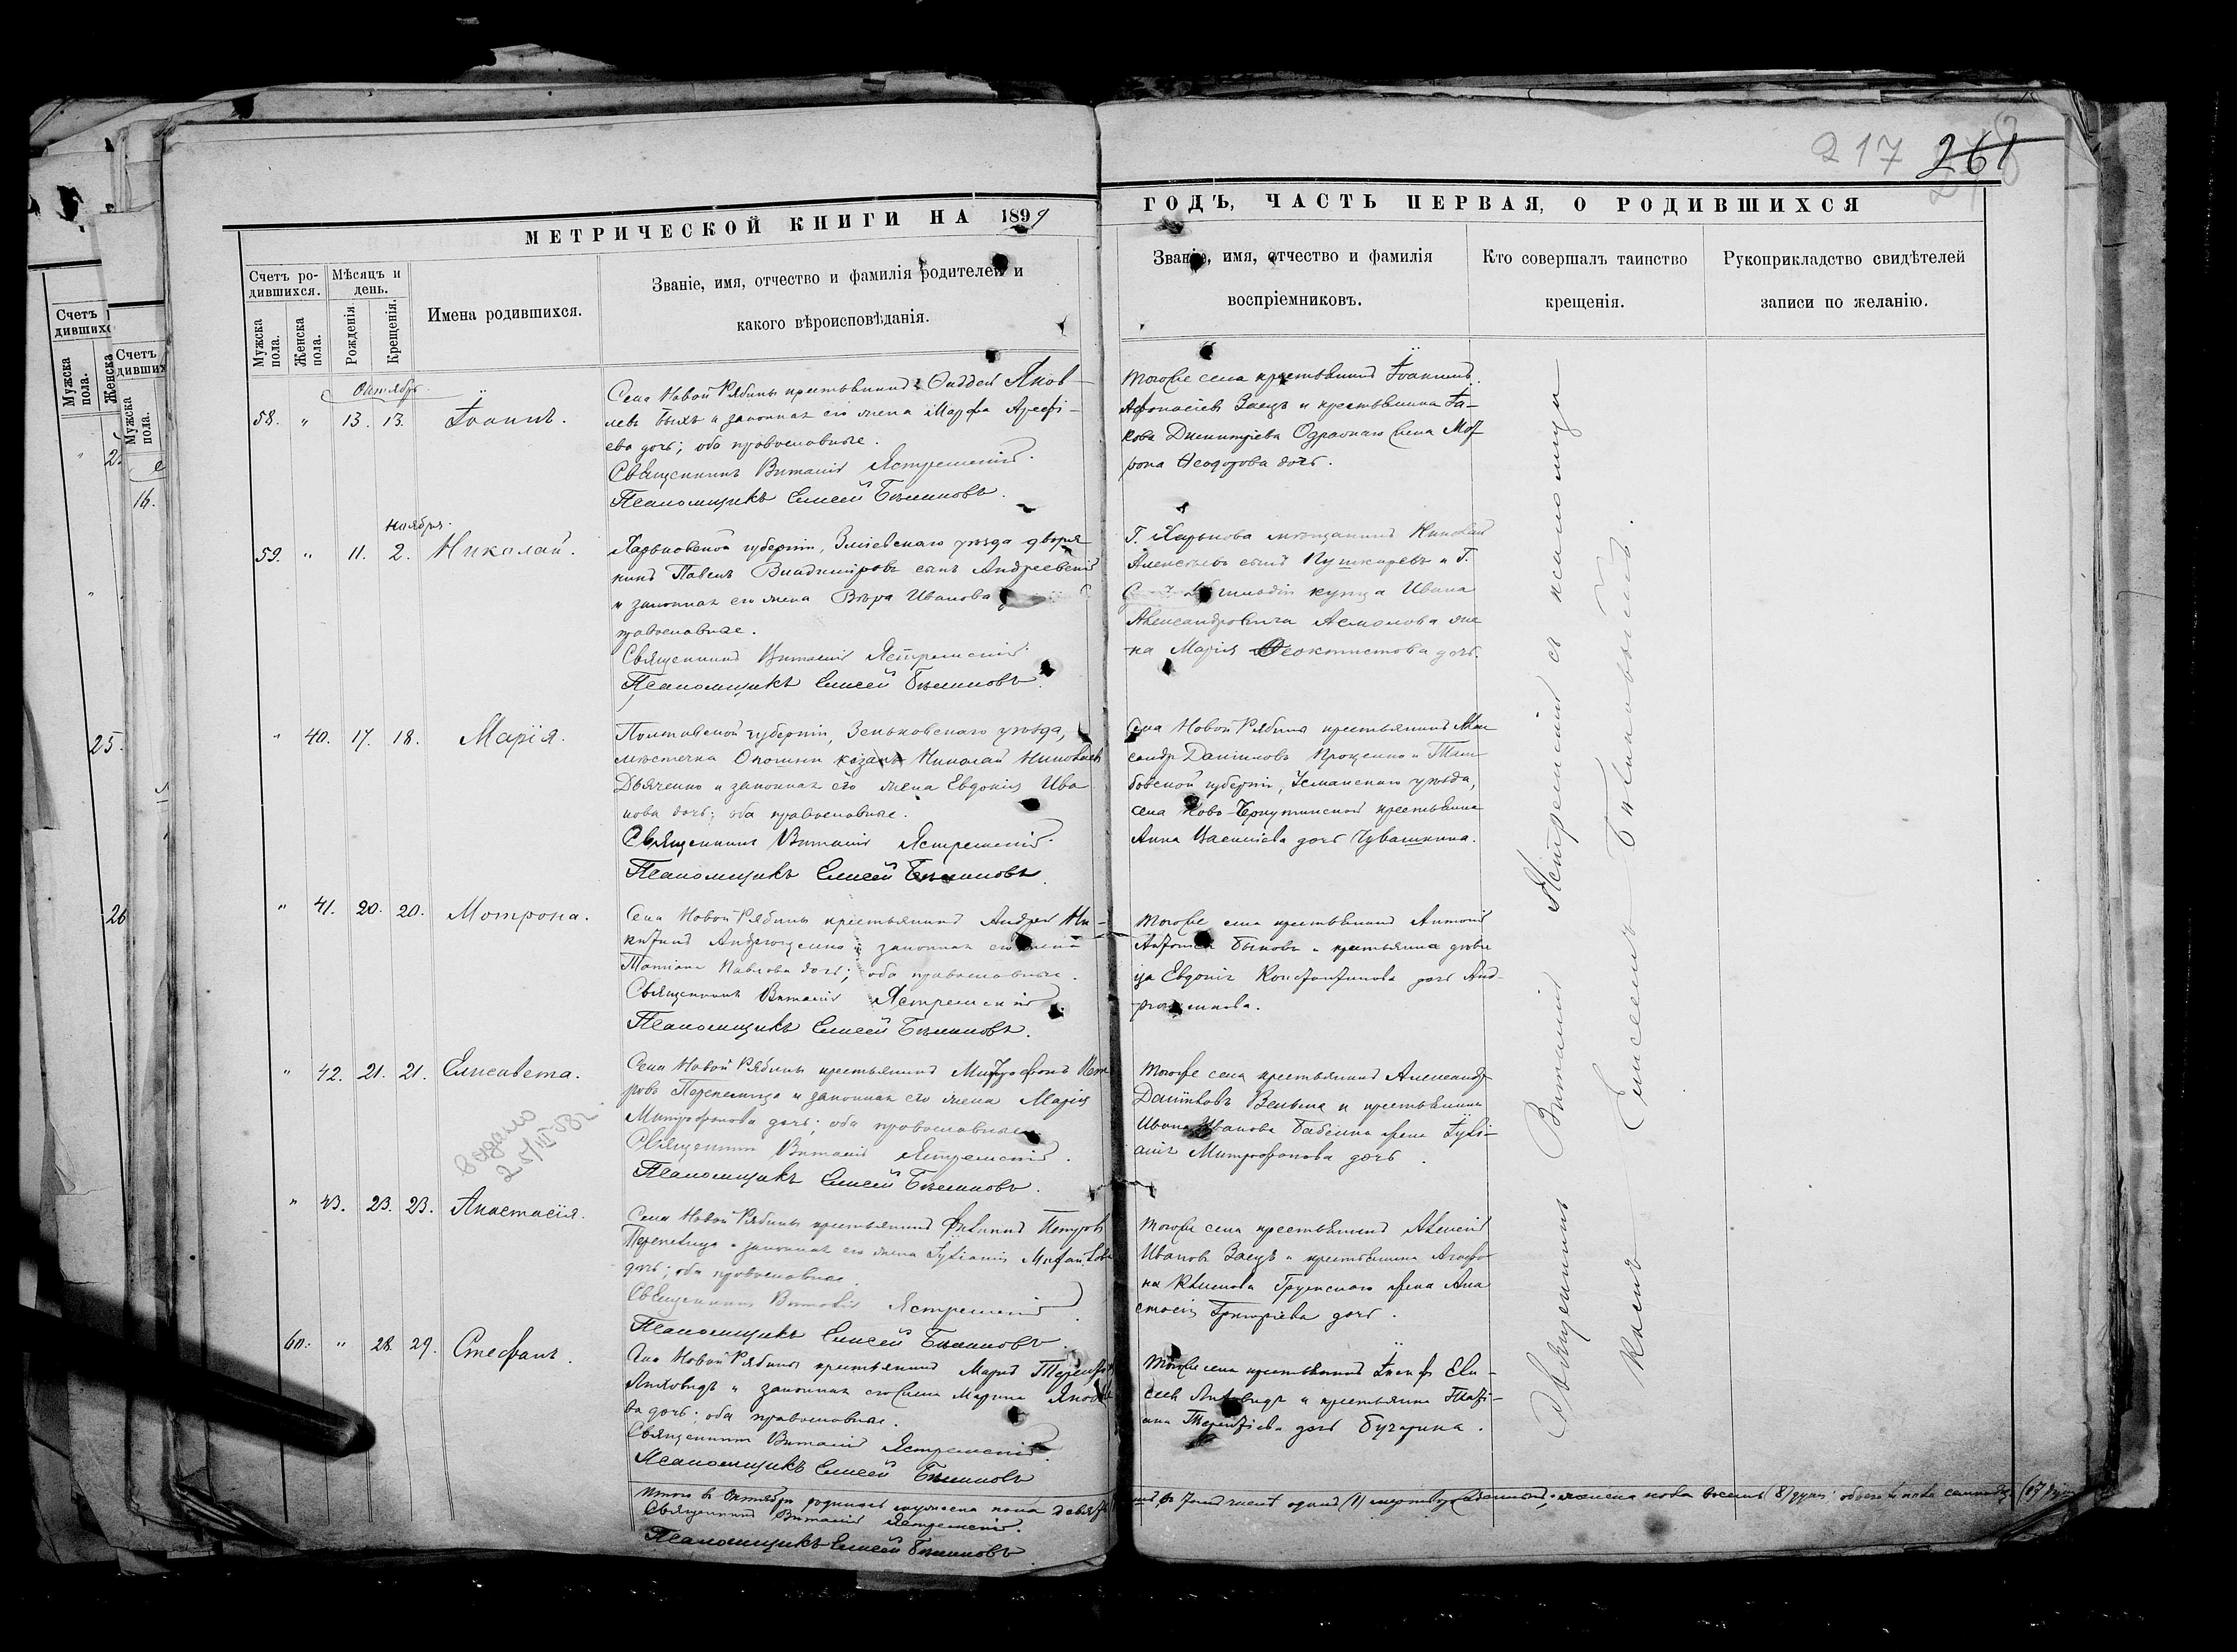 217 261
МЕТРИЧЕСКОЙ КНИГИ НА 1899
ГОДЪ, ЧАСТЬ ПЕРВАЯ, О РОДИВШИХСЯ
Счетъ ро-
дившихся.
Мѣсяцъ и
день.
Мужска
пола.
Женска
пола.
Рожденія.
Крещенія.
Имена родившихся.
Званіе, имя, отчество и фамилія родителей и
какого вѣроисповѣданія.
Званіе, имя, отчество и фамилія
воспріемниковъ.
Кто совершалъ таинство
крещенія.
Рукоприкладство свидѣтелей
записи по желанію.
Октябрь.
58. " 13. 13. Іоаннъ.
Села Новой Рябины крестьянинъ Фаддей Яков-
левъ Быкъ и законная его жена Марфа Арефі-
ева дочь; оба православные.
Священникъ Виталій Ястремскій.
Псаломщикъ Елисей Бѣликовъ.
Тогоже села крестьянинъ Іоаннъ
Афонасіевъ Заецъ и крестьянина Іа-
кова Димитріева жена Мат
рона Ѳеодорова дочь.
ноября.
59. " 11. 2. Николай.
Харьковской губерніи, Зміевскаго уѣзда дворя
нинъ Павелъ Владиміровъ сынъ Андреевскій
и законная его жена Вѣра Иванова
православные.
Священникъ Виталій Ястремскій.
Псаломщикъ Елисей Бѣликовъ.
Г. Харькова мѣщанинъ Николай
Алексѣевъ сынъ Пушкаревъ и Г.
гильдіи купца Ивана
Александровича Асмолова же
на Марія Ѳеоктистова дочь.
" 40. 17. 18. Марія.
Полтавской губерніи, Зеньковскаго уѣзда,
мѣстечка Опошни козакъ Николай Николаевъ
Дьяченко и законная его жена Евдокія Ива
нова дочь; оба православные.
Священникъ Виталій Ястремскій.
Псаломщикъ Елисей Бѣликовъ
Села Новой Рябины крестьянинъ Алек
сандръ Даніиловъ Проценко и Там
бовской губерніи, Усманскаго уѣзда,
села Ново-Черкутинской крестьянка
Анна Василіева дочь Чувашкина.
" 41. 20. 20. Мотрона.
Села Новой Рябины крестьянинъ Андрей Ни-
китинъ Андрющенко и законная его жена
Татіана Павлова дочь; оба православные.
Священникъ Виталій Ястремскій
Псаломщикъ Елисей Бѣликовъ.
Тогоже села крестьянинъ Антоній
Антоніевъ Быковъ и крестьянка дѣви
ца Евдокія Константинова дочь Анд-
рющенкова.
" 42. 21. 21. Елисавета.
Села Новой Рябины крестьянинъ Митрофанъ Пет
ровъ Перепелица и законная его жена Марія
Митрофанова дочь; оба православные.
Священникъ Виталій Ястремскій.
Псаломщикъ Елисей Бѣликовъ.
Тогоже села крестьянинъ Александръ
Даніиловъ и крестьянина
Ивана Иванова Бабенка жена Іулі-
анія Митрофанова дочь.
выдано
" 43. 23. 23. Анастасія.
Села Новой Рябины крестьянинъ Филиппъ Петровъ
Перепелица и законная его жена Іуліанія Михаилова
дочь; оба православные.
Священникъ Виталій Ястремскій
Псаломщикъ Елисей Бѣликовъ.
Тогоже села крестьянинъ Алексій
Ивановъ Заецъ и крестьянина Агафо
на Климова жена Ана
стасія Григоріева дочь.
60. " 28. 29. Стефанъ.
Села Новой Рябины крестьянинъ Маркъ Терентіевъ
Лиховидъ и законная его жена Марина Яковле
ва дочь; оба православные.
Священникъ Виталій Ястремскій
Псаломщикъ Елисей Бѣликовъ
Тогоже села крестьянинъ Іосифъ Ели-
сеевъ Лиховидъ и крестьянка Таті-
ана Терентіева дочь.
Священникъ Виталій Ястремскій съ псаломщи-
комъ Елисеемъ Бѣликовымъ.
Итого въ Октябрѣ родилось мужеска пола девять въ томъ числѣ одинъ (1) мертворожденный; женска пола восемь (8) душъ; обоего пола семнадц. (17) душъ
Священникъ Виталій Ястремскій.
Псаломщикъ Елисей Бѣликовъ